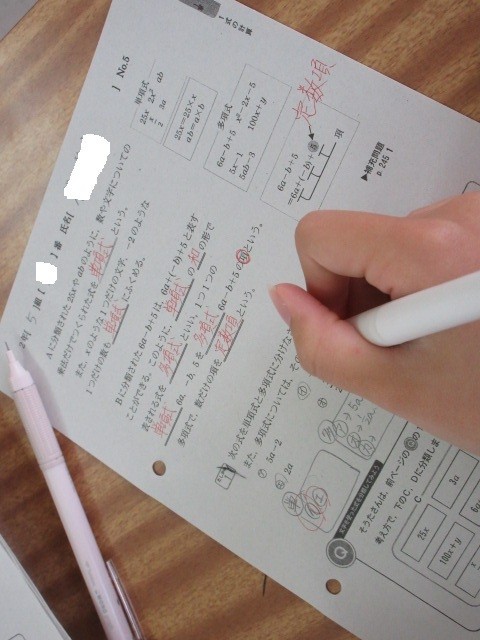 1 式の計算
No.5
2年(5)組(
)番 氏名(
Aに分類された 25x や ab のように、数や文字についての
乗法だけでつくられた式を 単項式 という。
また、x のように1つだけの文字、-2のような
1つだけの数も 単項式 にふくめる。
Bに分類された 6a-b+5は、6a+(-b)+5と表す
ことができる。このように、単項式 の 和 の形で
表される式を 多項式 といい、1つ1つの
単項式 6a, -b, 5を 多項式 6a-b+5の項という。
多項式で、数だけの項を 定数項 という。
単項式
25x 2x² ab
3a
25x=25×x
ab=a×b
多項式
6a-b+5 x²-2x-5
5x-1 100x+y
5ab-3
定数項
6a-b+5
=6a+(-b)+5
項
▶補充問題
p.245 1
次の式を単項式と多項式に分けな
また、多項式については、そ
㋐ 5a-2
2a
Q
そうたさんは、前ページの
考え方で、下のC、Dに分類しま
C
25x
3a
100x+y
6a